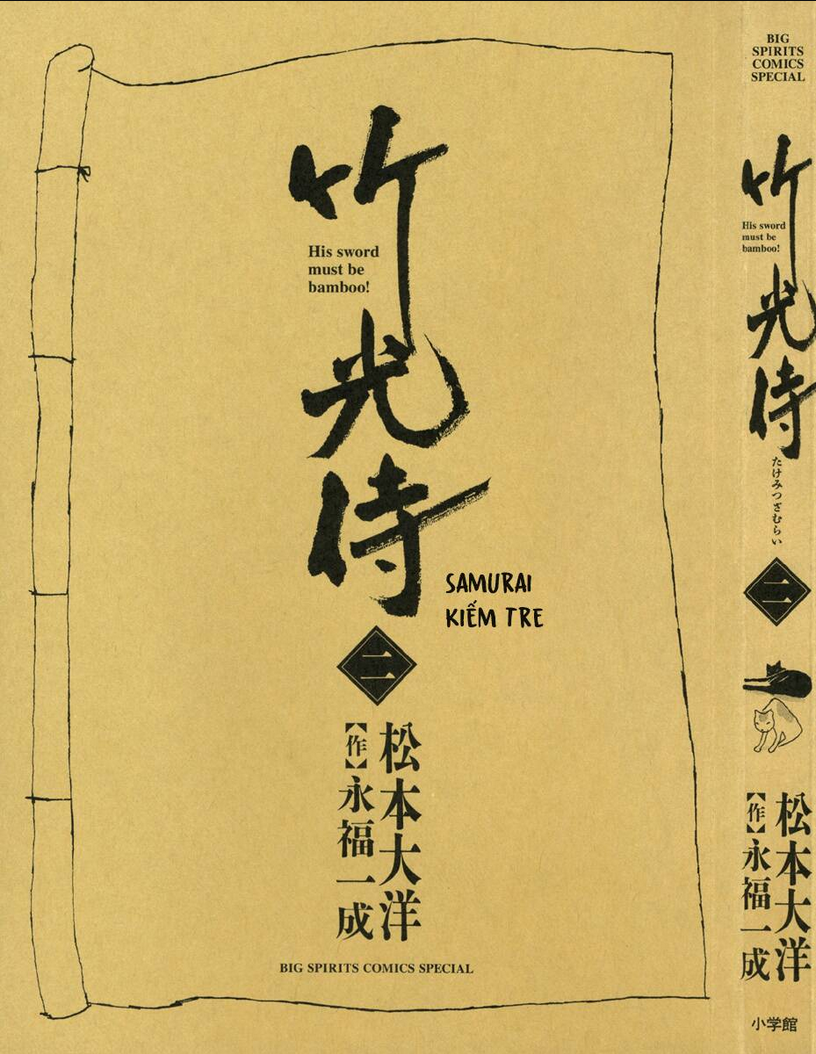 竹光侍
His sword
must be
bamboo!
SAMURAI
KIẾM TRE
二
松本大洋
【作】永福一成
BIG SPIRITS COMICS SPECIAL
BIG
SPIRITS
COMICS
SPECIAL
竹光侍
His sword
must be
bamboo!
たけみつざむらい
二
松本大洋
【作】永福一成
小学館